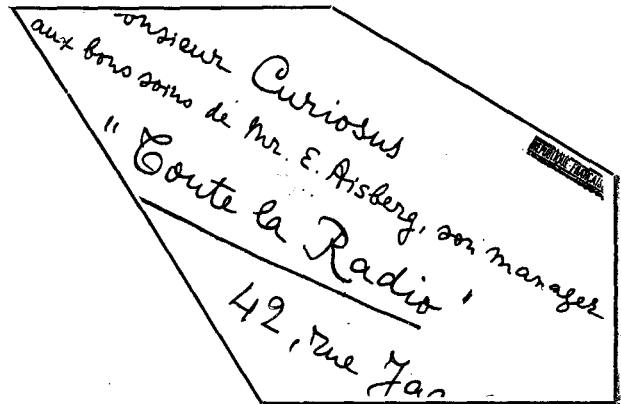 onsieur Curiosus
aux bons soins de Mr. E. Aisberg, son manager
"Toute la Radio"
42, rue Jac
RÉPUBLIQUE FRANÇAIS